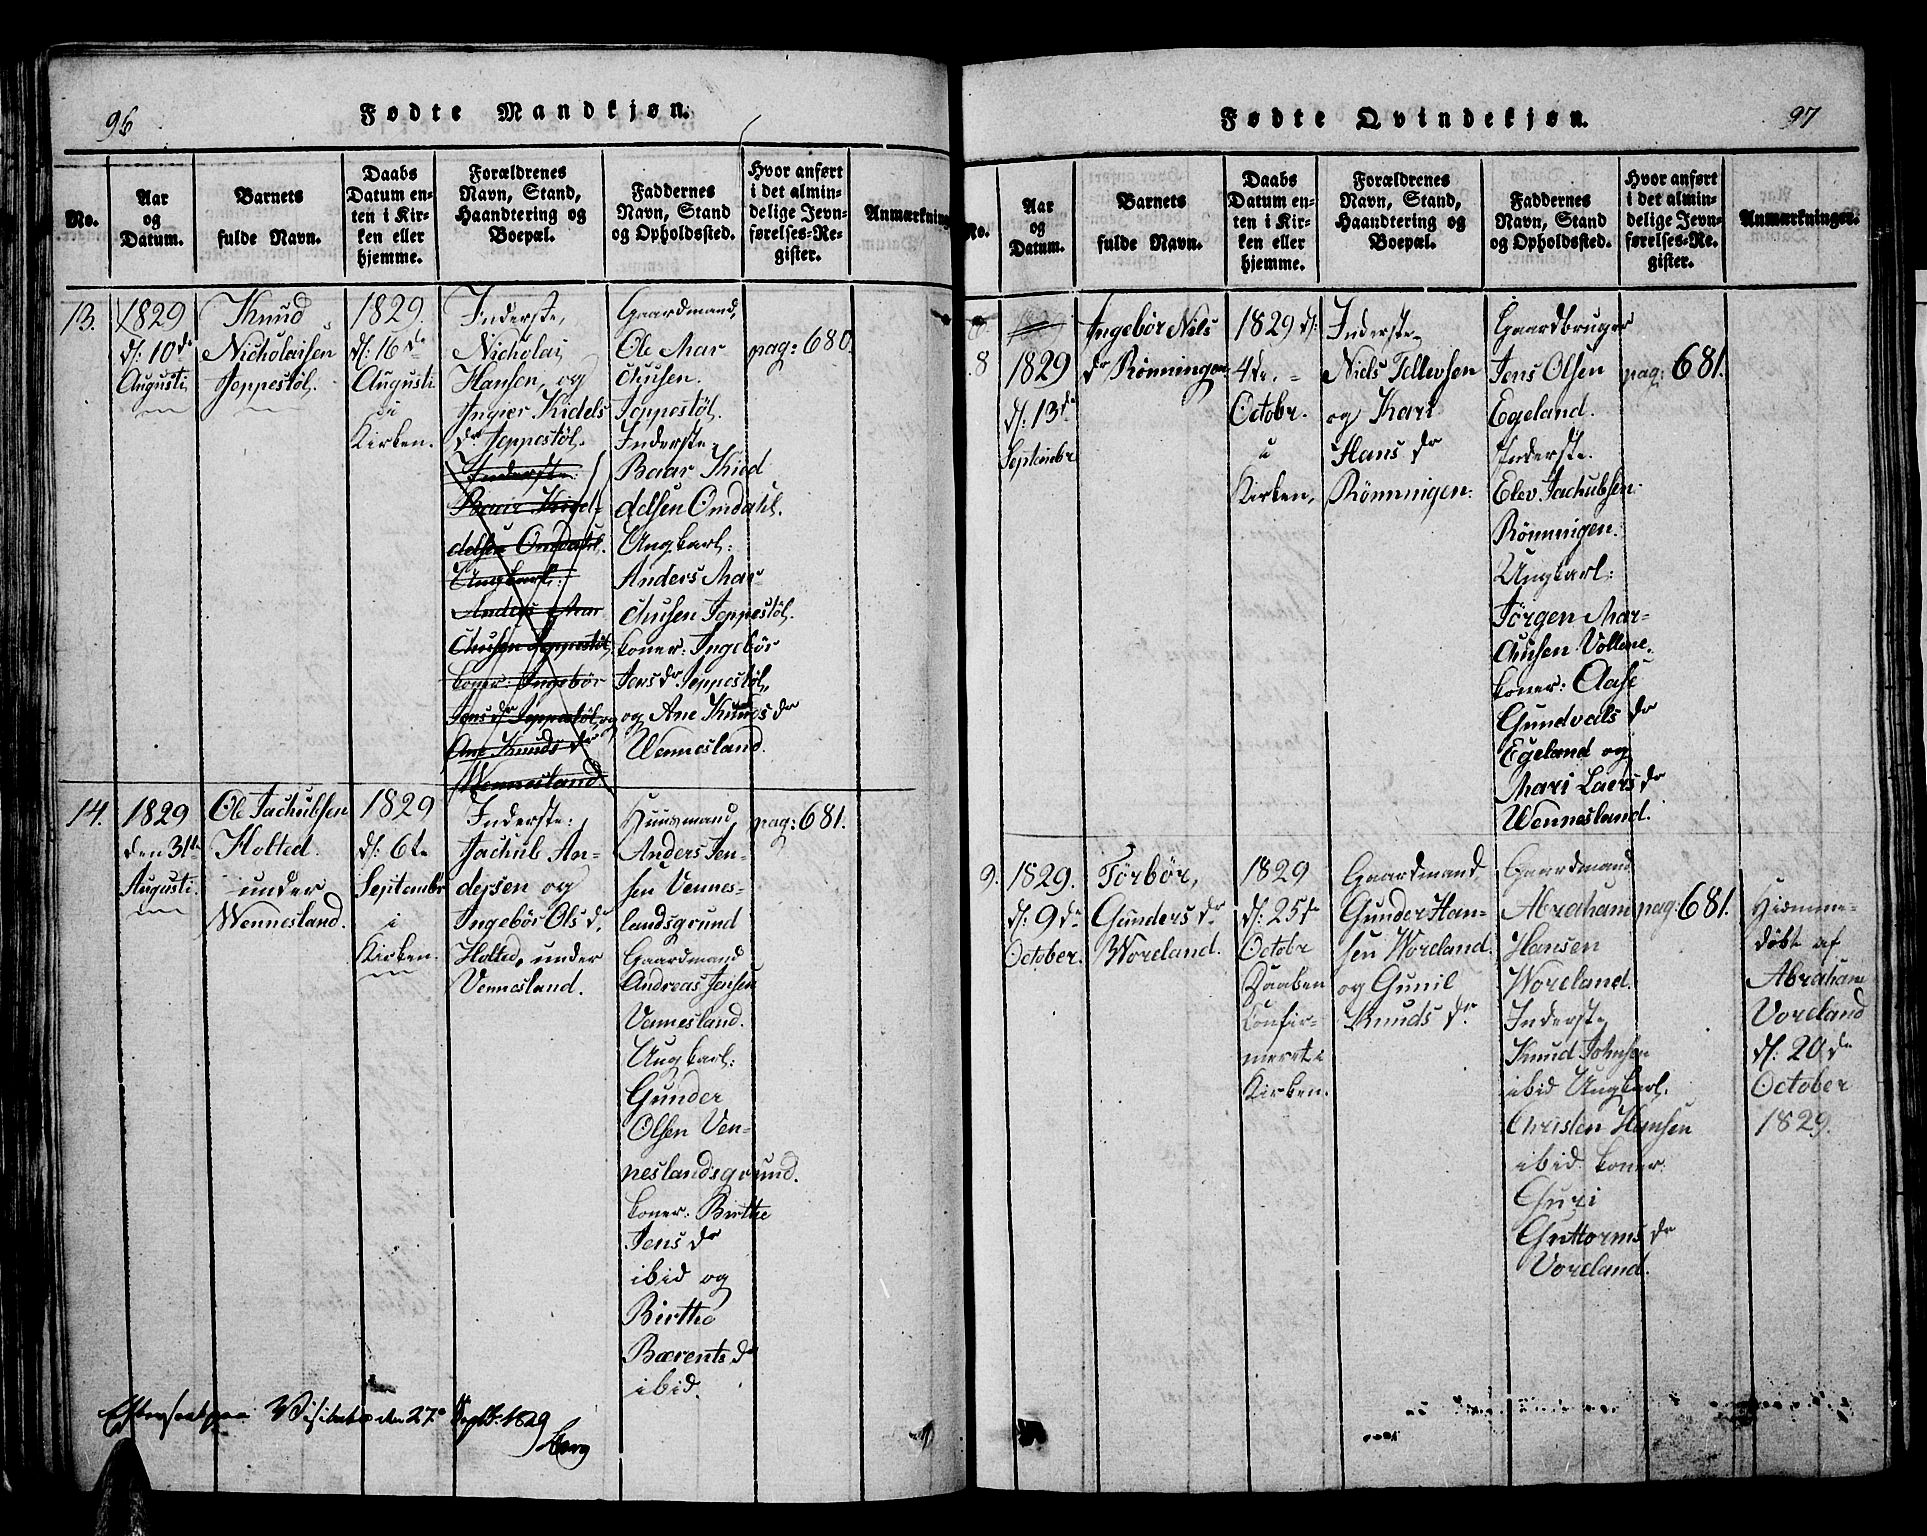 96
Fødte Mandkjøn.
No.
Aar
og
Datum.
Barnets
fulde Navn.
Daabs
Datum en-
ten i Kir-
ken eller
hjemme.
Forældrenes
Navn, Stand,
Haandtering og
Boepæl.
Faddernes
Navn, Stand
og Opholdssted.
Hvor anført
i det almin-
delige Jevn-
førelses-Re-
gister.
Anmærkning
13.
1829
d: 10de
Augusti
Knud
Nicholaisen
Jeppestøl.
1829.
d: 16de
Augusti
i
Kirken.
Inderste,
Nicholai
Hansen, og
Ingier Kidels
dr Jeppestøl.
Inderste:
Baar Kied-
delsen Omdahl.
Ungkarl:
Anders Mar
chusen Jeppestøl,
koner: Ingebør
Jens dr Jeppestøl, og
Ane Knuds dr
Wennesland.
Gaardmand,
Ole Mar
chusen.
Jeppestøl.
Inderste
Baar Kied
delsen Omdahl.
Ungkarl:
Anders Mar
chusen Jeppestøl.
koner: Ingebør
Jens dr Jeppestøl,
og Ane Knuds dr
Wennesland.
pag: 680.
14.
1829
den 31te
Augusti.
Ole Jachubsen
Holted.
under
Wennesland.
1829
d: 6te
Septembr
i
Kirken.
Inderste:
Jachub An-
dersen og
Ingebør Ols dr.
Holted, under
Vennesland.
Huusmand
Anders Jen-
sen Vennes-
landsgrund
Gaardmand
Andreas Jensen
Vennesland.
Ungkarl:
Gunder
Olsen Ven-
neslandsgrund.
koner: Birthe
Jens dr
ibid og
Birthe
Bærents dr
ibid.
pag: 681.
Visitats den 27. Septbr: 1829
97
Fødte Qvindekjøn.
No.
Aar
og
Datum.
Barnets
fulde Navn.
Daabs
Datum en-
ten i Kir-
ken eller
hjemme.
Forældrenes
Navn, Stand,
Haandtering og
Boepæl.
Faddernes
Navn, Stand
og Opholdssted.
Hvor anført
i det almin-
delige Jevn-
førelses-Re-
gister.
Anmærkninger.
8
1829
d: 13de
Septembr
Ingebør Nils
dr Rønningen.
1829 d:
4de,
Octobr.
i
Kirken,
Inderste
Niels Tellevsen
og Kari
Hans dr
Rønningen.
Gaardbruger
Jens Olsen
Egeland.
Inderste.
Elev Jachubsen
Rønningen.
Ungkarl:
Jørgen Mar-
chusen Vollene.
koner: Aase
Gundvals dr
Egeland og
Mari Laers dr
Wennesland.
pag: 681.
9.
1829.
d: 9de
October.
Tørbør,
Gunders dr
Woreland.
1829
d: 25de
Octobr
Daaben
Confir-
meret i
Kirken.
Gaardmand
Gunder Han-
sen Woreland.
og Gunil
Knuds dr.
Gaardmand
Abraham
Hansen
Woreland.
Inderste
Knud Johnsen
ibid Ungkarl.
Christen Hansen
ibid. koner.
Guri
Guttorms dr
Voreland.
pag: 681.
Hiemme-
døbt af
Abraham
Voreland
d: 20de
October
1829.